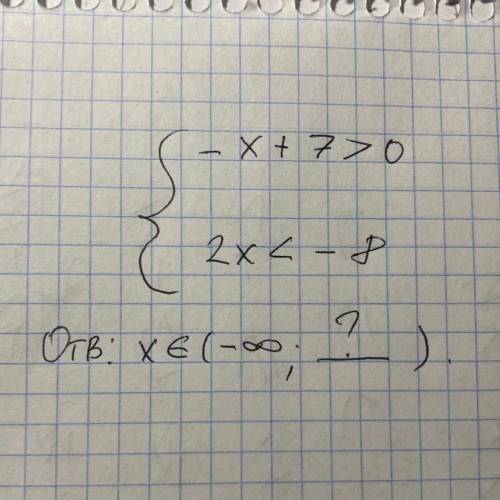 { - x + 7 > 0
2x < - 8
Отв: x ∈ (-∞; ?).